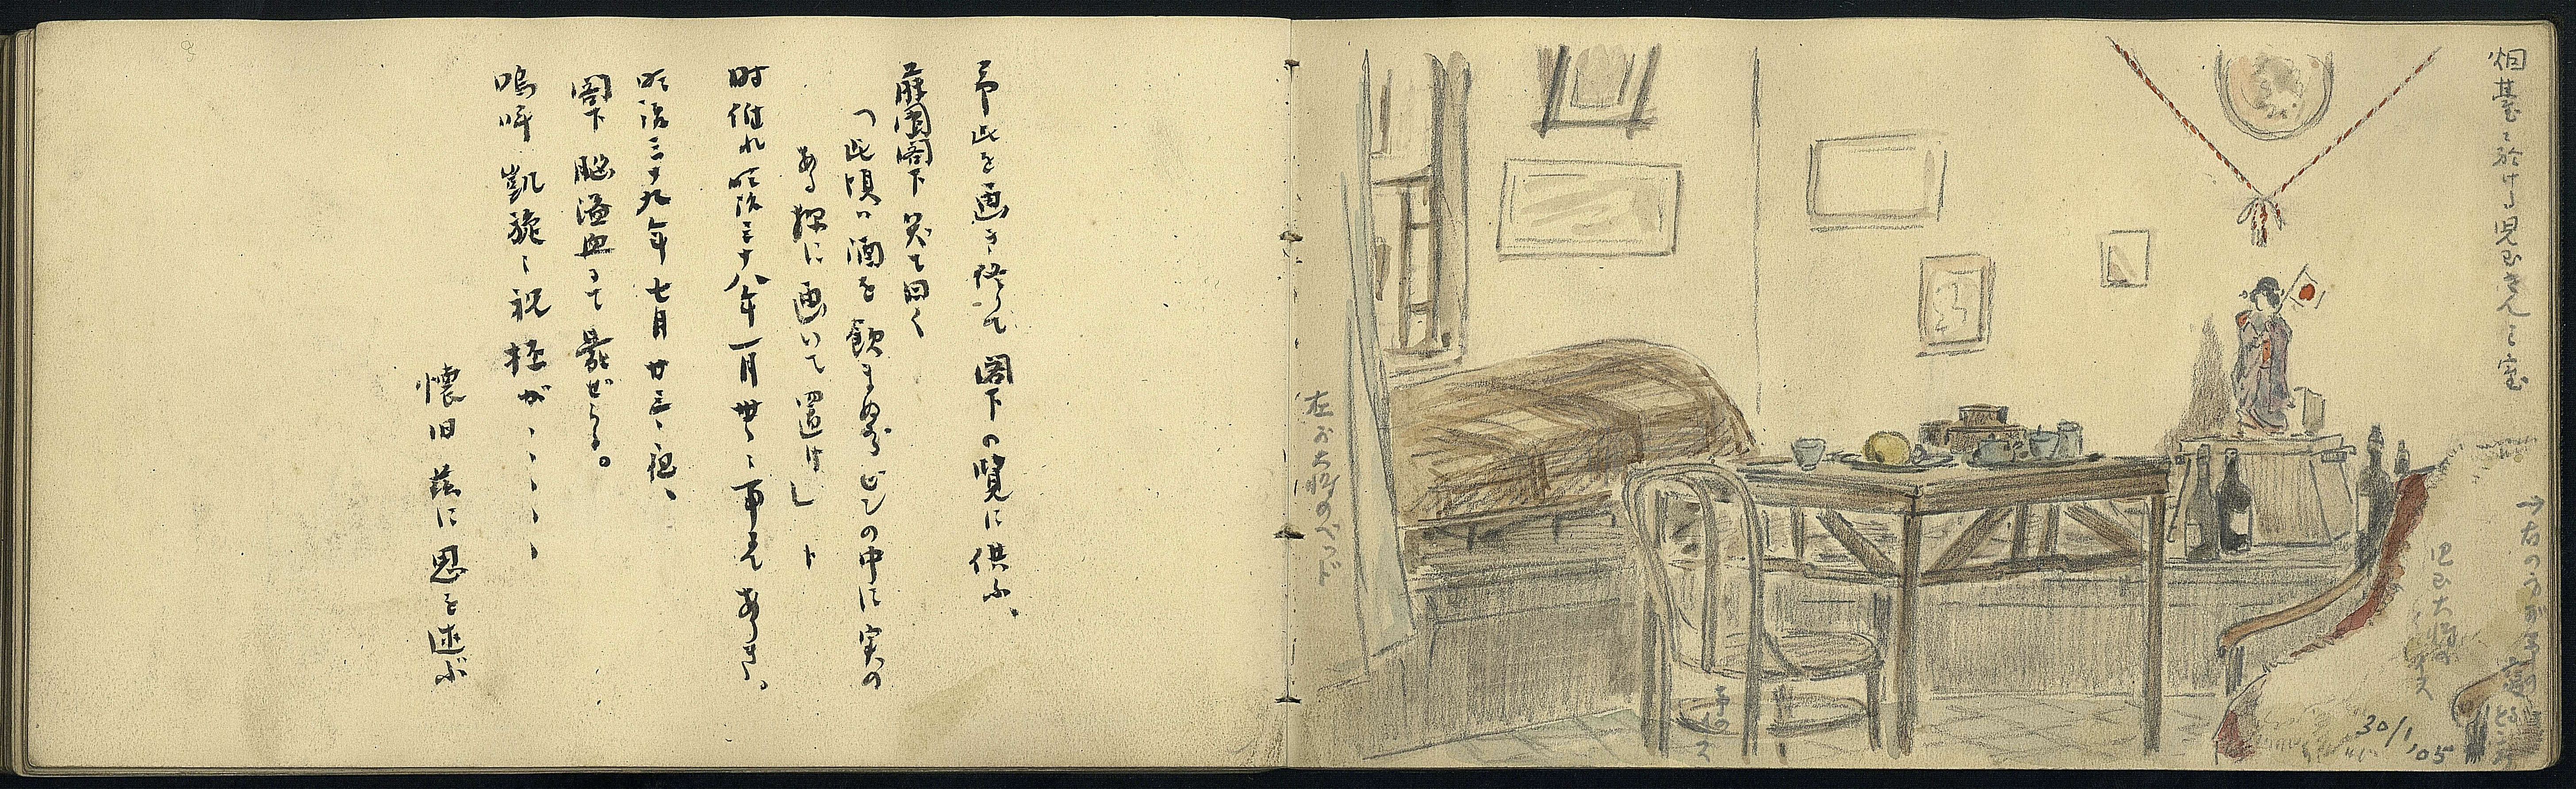 烟臺ニ於ける児玉さんの室
→右の方が予の寝どころ
児玉大将のイス
30/1,05
予のイス
左が大将のベッド
予此を画き終って閣下の覧に供ふ、
藤園閣下笑て曰く
「此頃ハ酒を飲まぬからビンの中に実の
ある様に画いて置け」ト
時維れ明治三十八年一月卅日の事にてありき。
明治三十九年七月廿三日夜、
閣下脳溢血にて薨ぜらる。
嗚呼凱旋の祝杯が、、、、、
懐旧茲に思を述ぶ